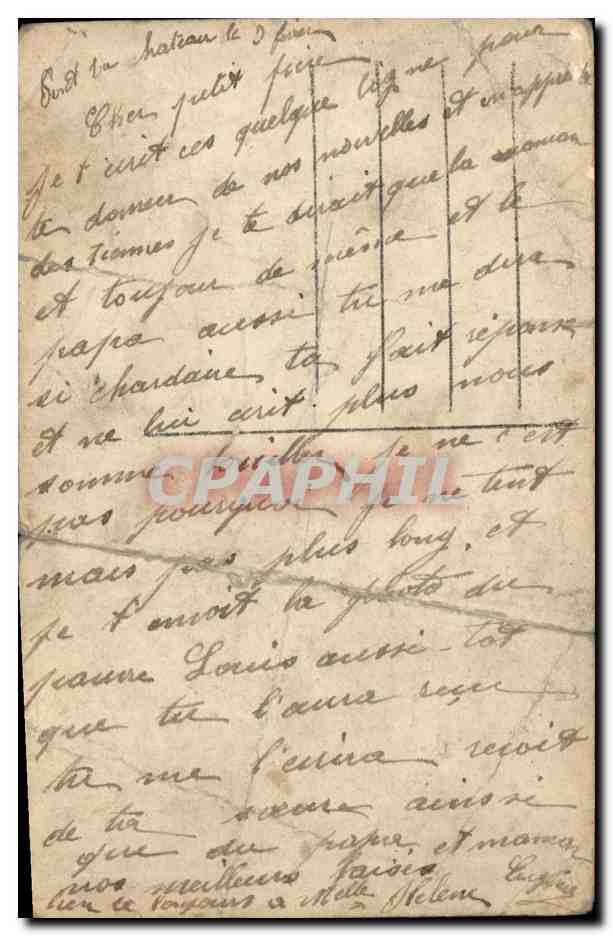 Pont du Chateau le 9 fevrier
Cher petit frère
Je t'ecrit ces quelque ligne pour
te donner de nos nouvelles et en apprendre
des tiennes je te dirait que la maman
et toujour de même et le
papa aussi tu me dira
si chardaire ta fait réponse
et ne lui ecrit plus nous
somme je ne c'est
pas pourquoi je ne tent
mais pas plus long, et
je t'envoit la photo du
pauvre Louis aussi-tôt
que tu l'aura reçu
tu me l'ecrira reçoit
de ta sœure ainssi
que du papa et maman
nos meilleurs baisés
bien le bonjours a Melle Hélène
CPAPHIL